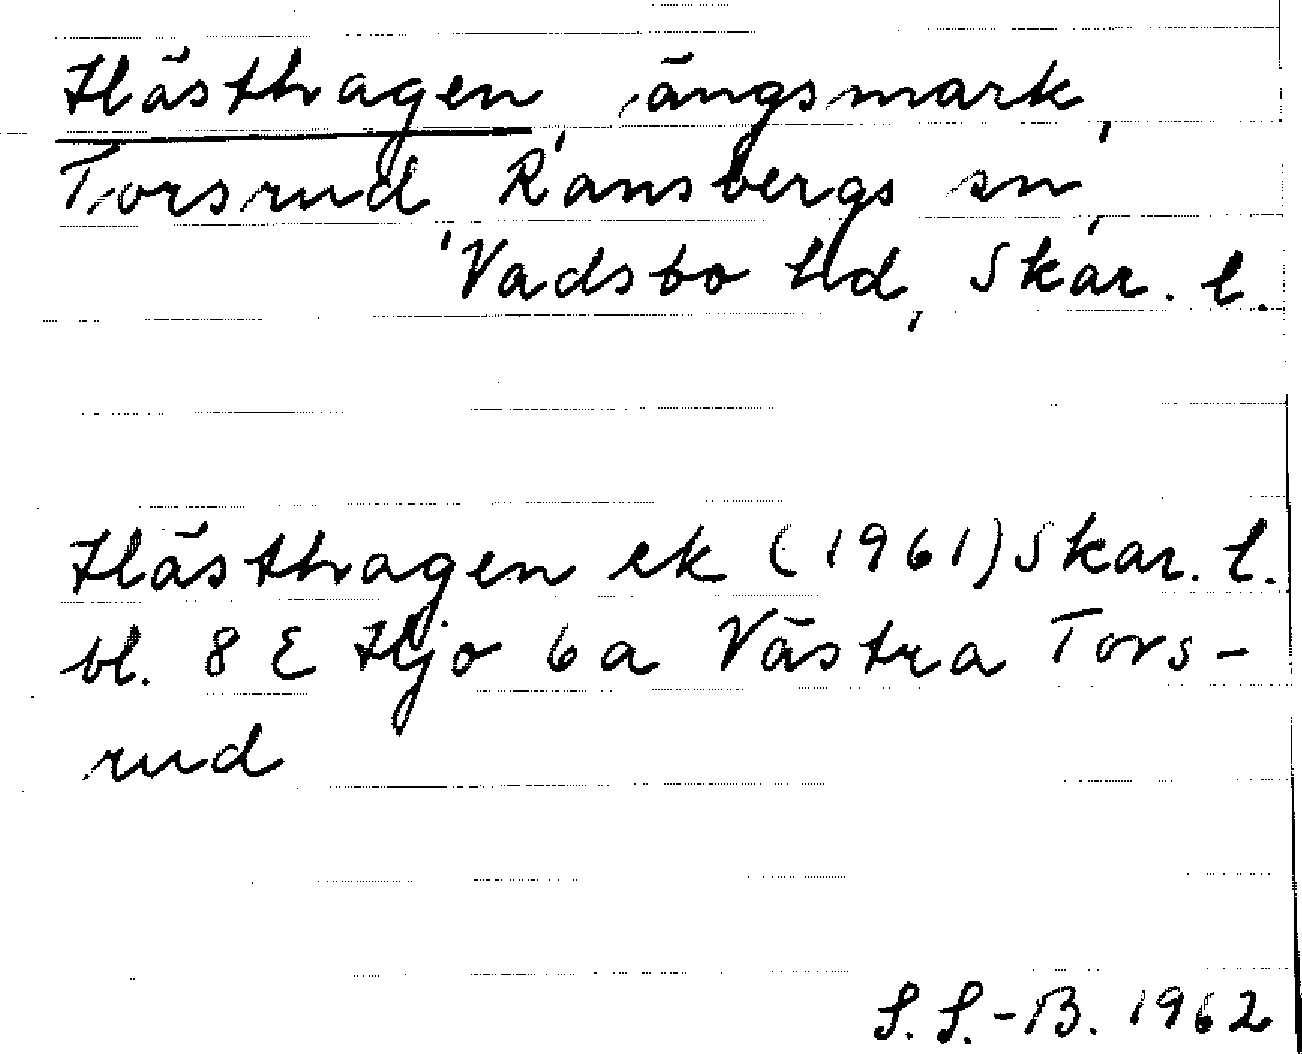 Hästhagen, ängsmark,
Torsrud, Ransbergs sn,
Vadsbo hd, Skar. l.
Hästhagen ek (1961) Skar. l.
bl. 8 E Hjo 6a Västra Tors-
rud
S. S.-B. 1962